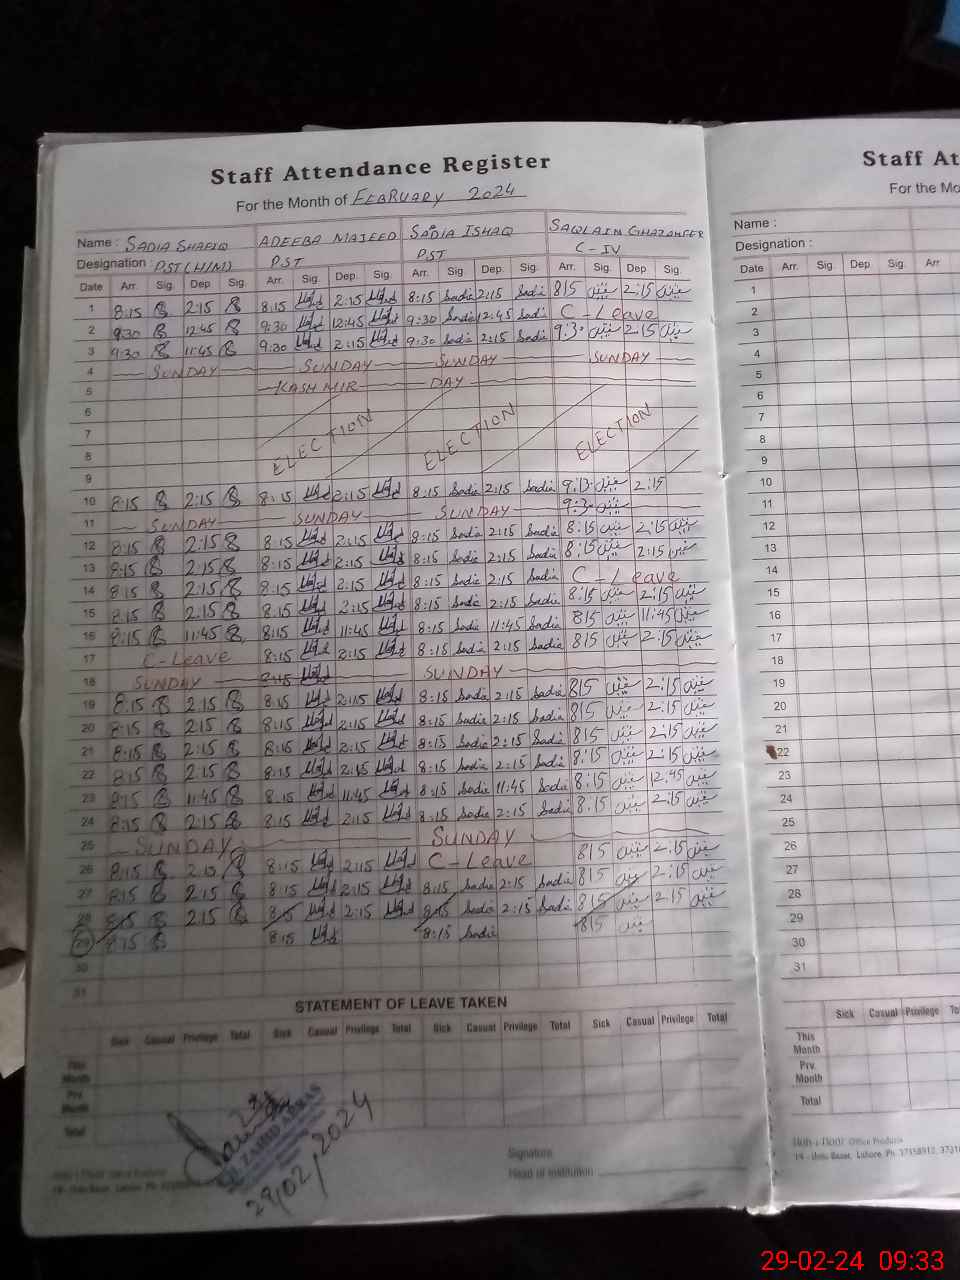 Staff Attendance Register
For the Month of FEBRUARY 2024
Name : SADIA SHAFIQ ADEEBA MAJEED SADIA ISHAQ SAQLAIN GHAZANFER
Designation : PST (H/M) PST PST C-IV
Date Arr. Sig. Dep Sig. Arr. Sig. Dep. Sig. Arr. Sig. Dep. Sig. Arr. Sig. Dep Sig.
1 8:15 2:15 8:15 2:15 8:15 Sadia 2:15 Sadia 815 2:15
2 9:30 12:45 9:30 12:45 9:30 Sadia 12:45 Sadia C-Leave
3 9:30 11:45 9:30 2:15 9:30 Sadia 2:15 Sadia 9:30 2:15
4 SUNDAY SUNDAY SUNDAY SUNDAY
5 KASHMIR DAY
6
7 ELECTION ELECTION ELECTION
8
9
10 8:15 2:15 8:15 2:15 8:15 Sadia 2:15 Sadia 2:15
11 SUNDAY SUNDAY SUNDAY 9:30
12 8:15 2:15 8:15 2:15 8:15 Sadia 2:15 Sadia 8:15 2:15
13 8:15 2:15 8:15 2:15 8:15 Sadia 2:15 Sadia 8:15 2:15
14 8:15 2:15 8:15 2:15 8:15 Sadia 2:15 Sadia C-Leave
15 8:15 2:15 8:15 2:15 8:15 Sadia 2:15 Sadia 8:15 2:15
16 8:15 11:45 8:15 11:45 8:15 Sadia 11:45 Sadia 815 11:45
17 C-Leave 8:15 2:15 8:15 Sadia 2:15 Sadia 815 2:15
18 SUNDAY 8:15 SUNDAY
19 8:15 2:15 8:15 2:15 8:15 Sadia 2:15 Sadia 815 2:15
20 8:15 2:15 8:15 2:15 8:15 Sadia 2:15 Sadia 815 2:15
21 8:15 2:15 8:15 2:15 8:15 Sadia 2:15 Sadia 815 2:15
22 8:15 2:15 8:15 2:15 8:15 Sadia 2:15 Sadia 8:15 2:15
23 8:15 11:45 8:15 11:45 8:15 Sadia 11:45 Sadia 8:15 12:45
24 8:15 2:15 8:15 2:15 8:15 Sadia 2:15 Sadia 8:15 2:15
25 SUNDAY SUNDAY
26 8:15 2:15 8:15 2:15 C-Leave 815 2:15
27 8:15 2:15 8:15 2:15 8:15 Sadia 2:15 Sadia 815 2:15
28 8:15 2:15 8:15 2:15 8:15 Sadia 2:15 Sadia 815 2:15
29 8:15 8:15 8:15 Sadia 815
30
31
STATEMENT OF LEAVE TAKEN
Sick Casual Privilege Total Sick Casual Privilege Total Sick Casual Privilege Total Sick Casual Privilege Total
This Month
Prv. Month
Total
29/02/2024
Signature
Head of Institution
Staff At
For the Mo
Name :
Designation :
Date Arr. Sig. Dep Sig. Arr
1
2
3
4
5
6
7
8
9
10
11
12
13
14
15
16
17
18
19
20
21
22
23
24
25
26
27
28
29
30
31
Sick Casual Privilege Total
This Month
Prv. Month
Total
Office Products
19 - Urdu Bazar, Lahore. Ph. 37158912,
29-02-24 09:33